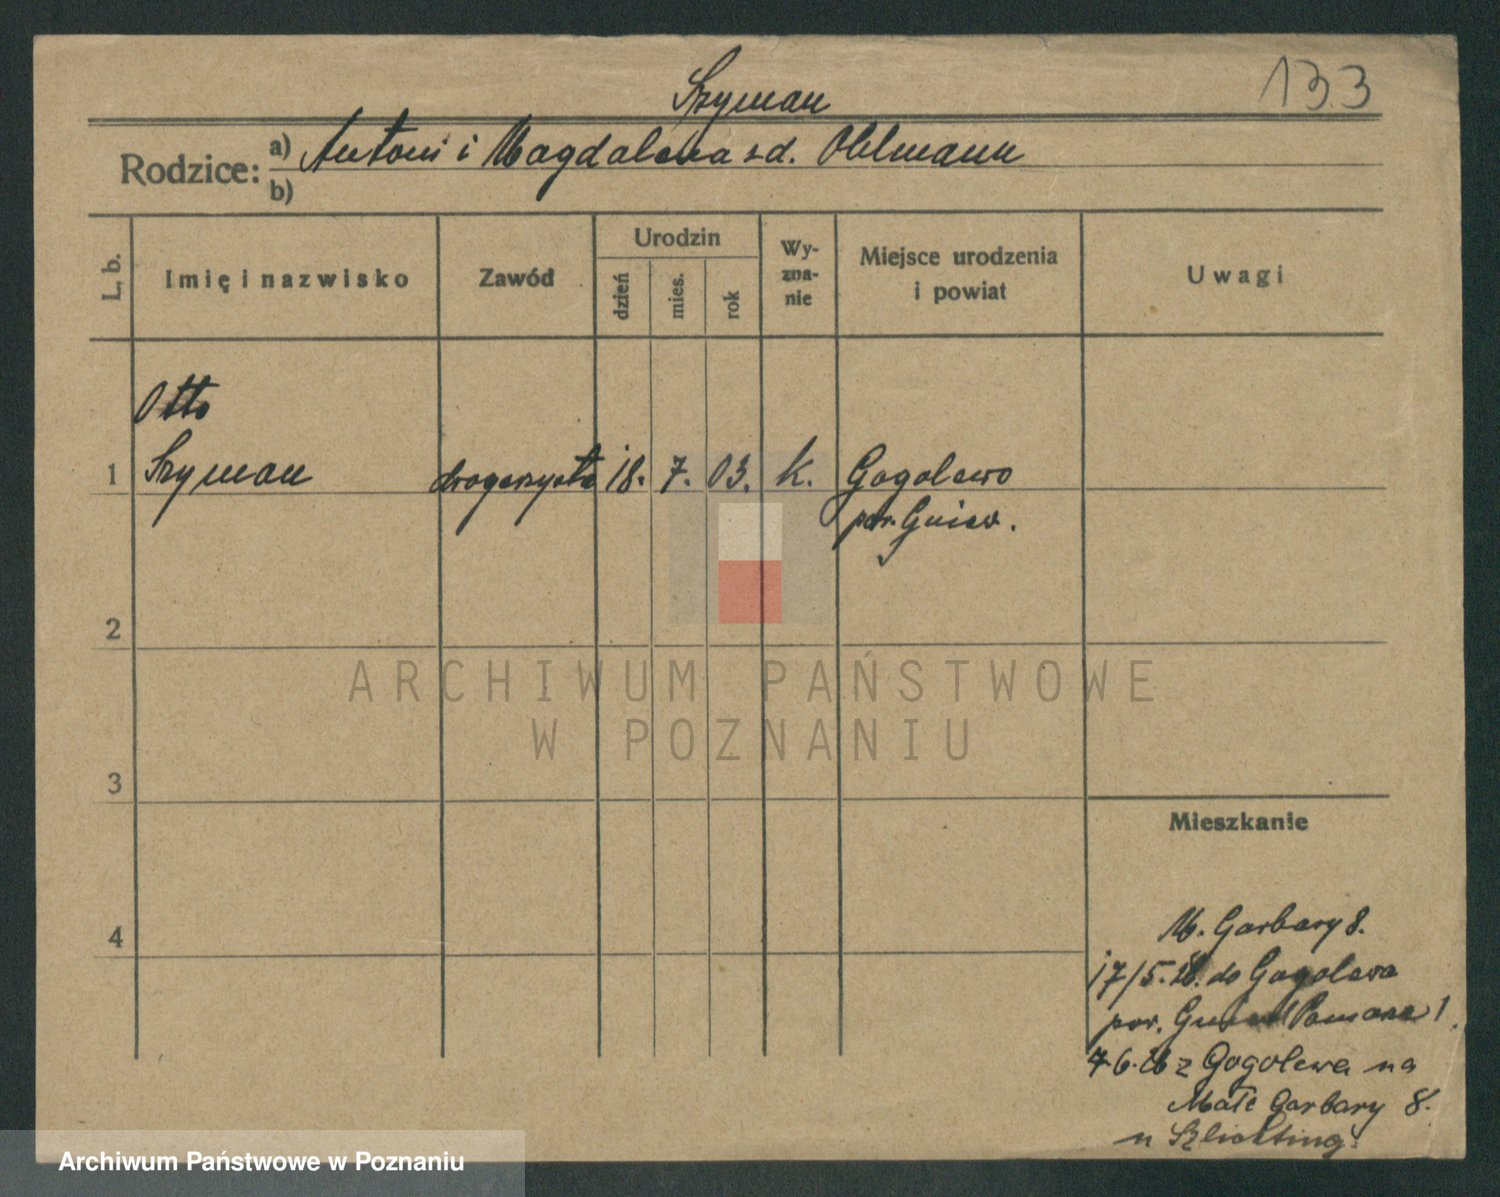 133
Szyman
Rodzice: a) Antoni i Magdalena z d. Ohlmann
b)
L. b. Imię i nazwisko Zawód Urodzin dzień mies. rok Wyznanie Miejsce urodzenia i powiat Uwagi
Otto
1 Szyman drogerzysta 18. 7. 03. k. Gogolewo
pow. Gniew.
2
ARCHIWUM PAŃSTWOWE
W POZNANIU
3
Mieszkanie
4
M. Garbary 8.
17/5. 26. do Gogolewa
pow. Gniew
7.6.26 z Gogolewa na
Małe Garbary 8.
u
Archiwum Państwowe w Poznaniu